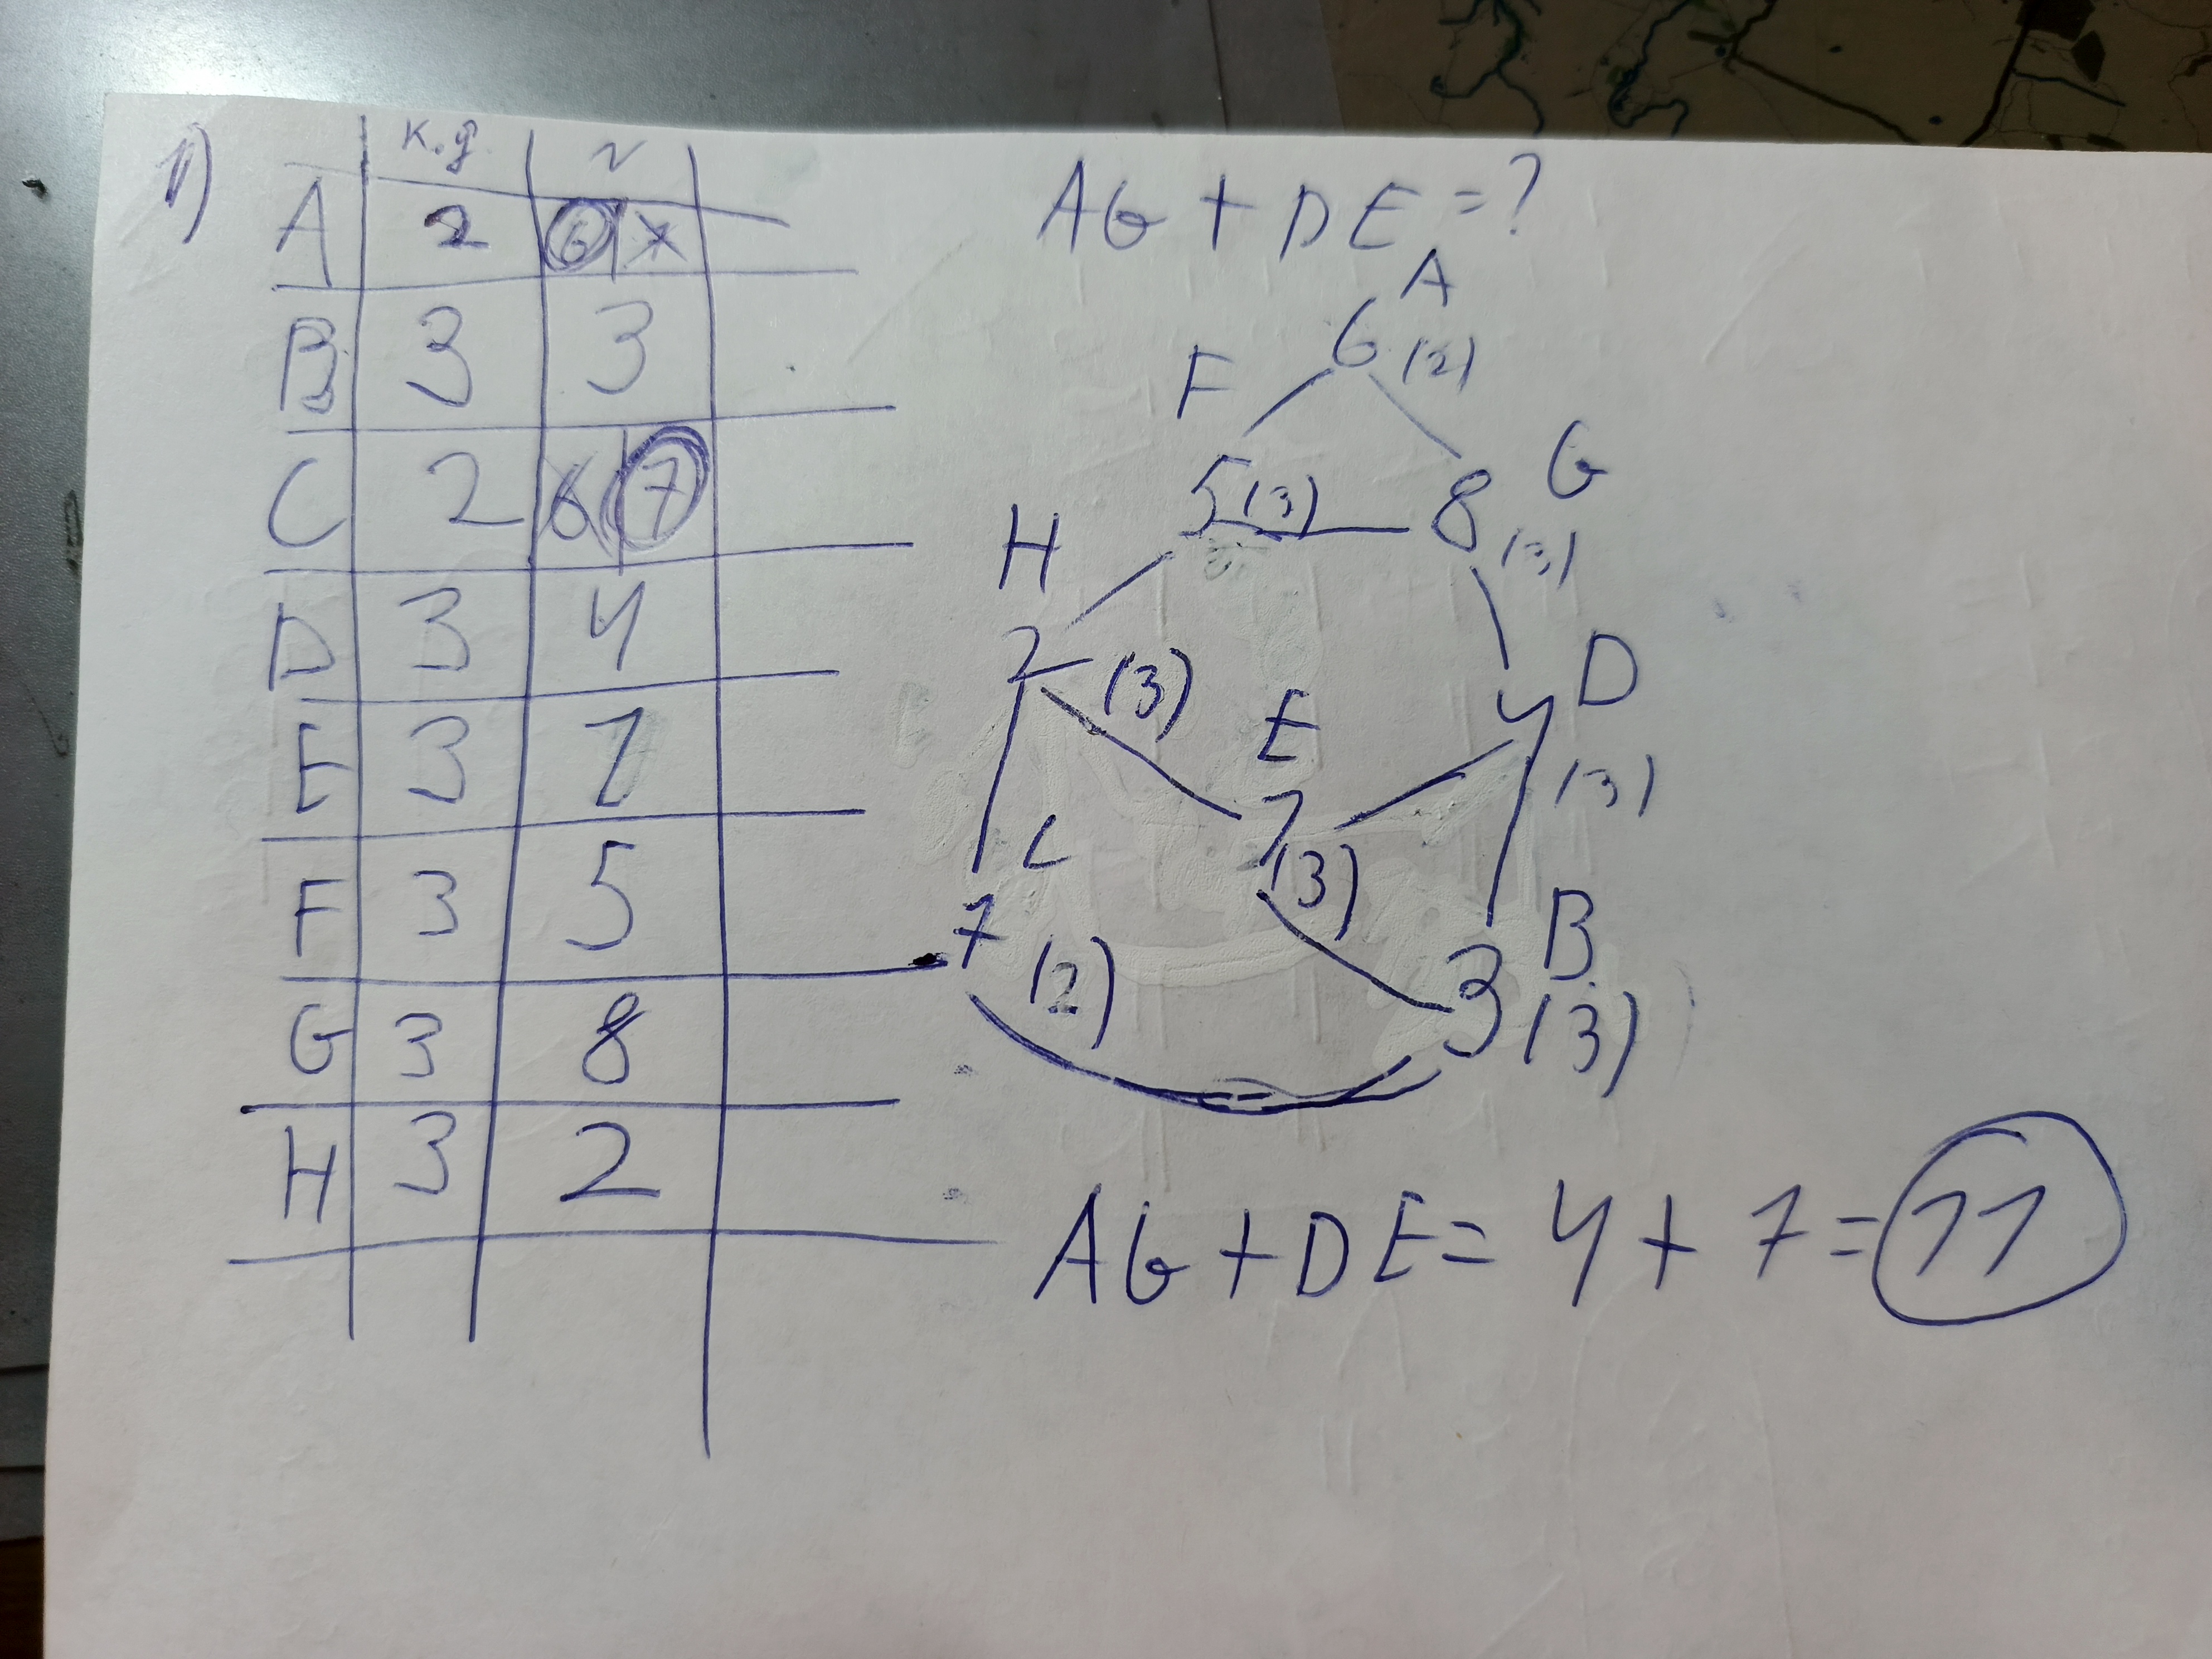 1)
к.д. N
A 2 6 7
B 3 3
C 2 6 7
D 3 4
E 3 1
F 3 5
G 3 8
H 3 2
AG + DE = ?
A
6 (2)
F
5 (3)
G
8 (3)
H
2 (3)
D
4 (3)
E
1 (3)
C
7 (2)
B
3 (3)
AG + DE = 4 + 7 = 11